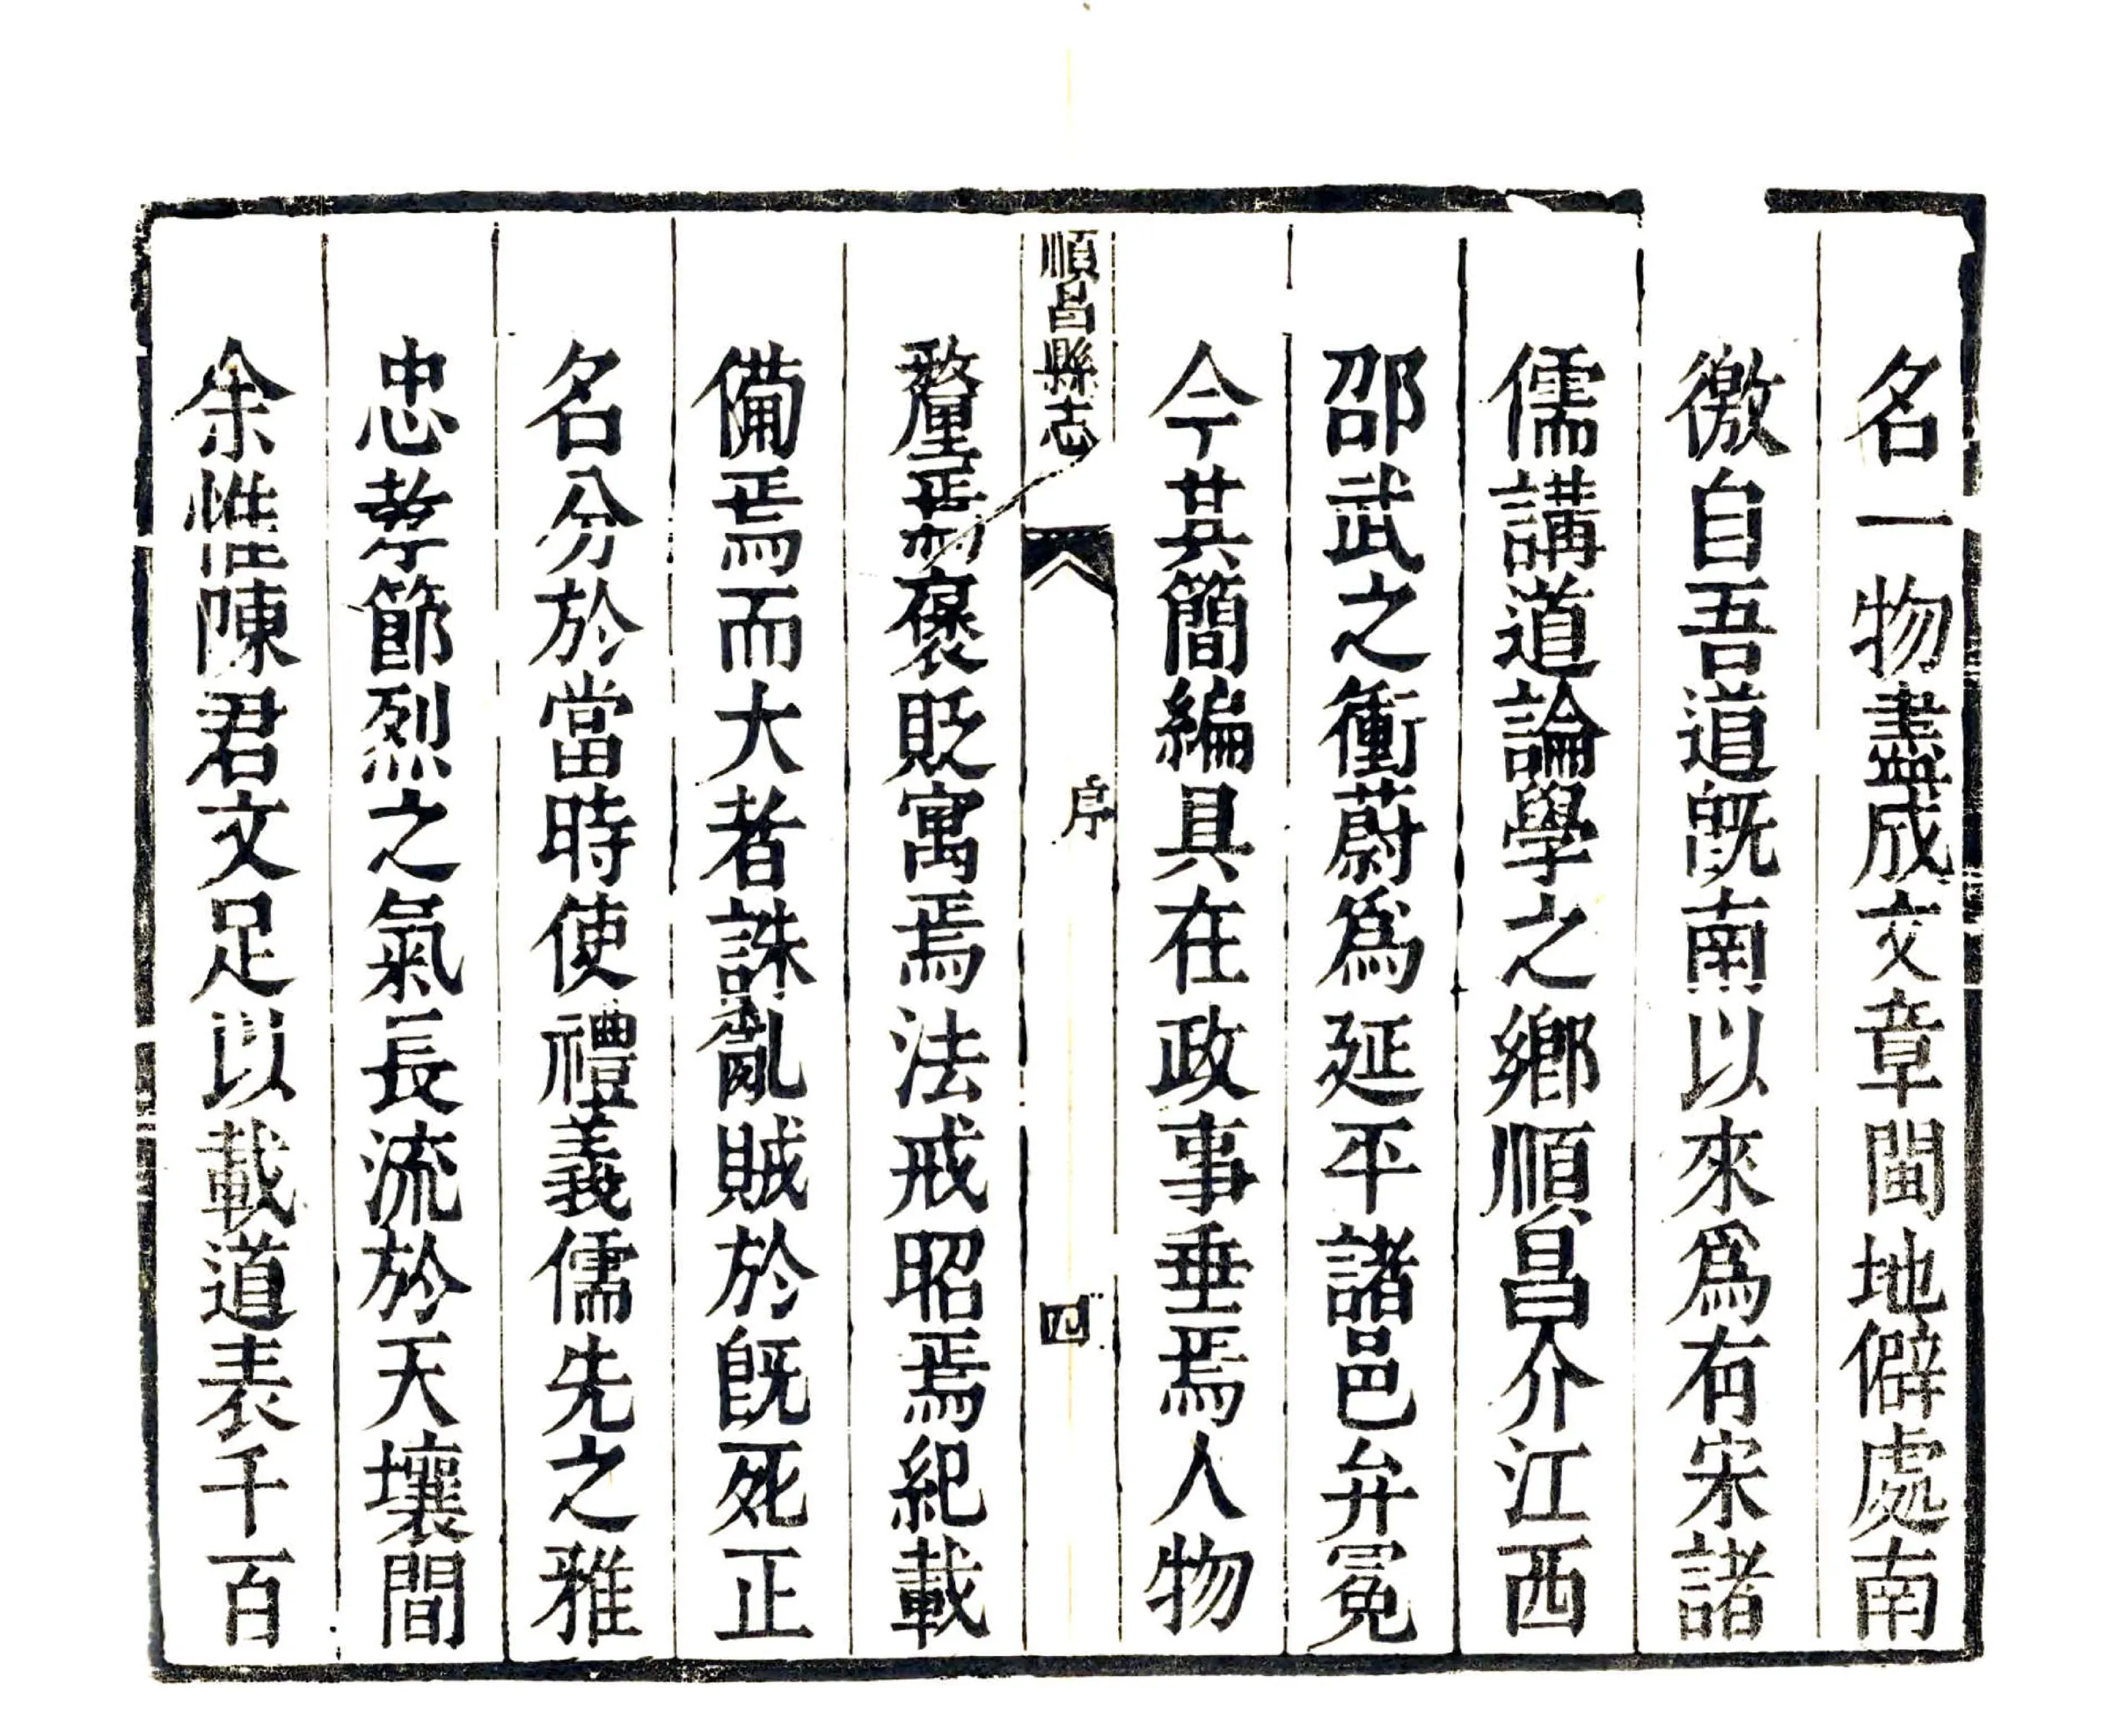 名一物盡成文章閩地僻處南
徼自吾道旣南以來爲有宋諸
儒講道論學之鄉順昌介江西
邵武之衝蔚爲延平諸邑弁冕
今其簡編具在政事垂焉人物
順昌縣志
序
四
釐焉褒貶寓焉法戒昭焉紀載
備焉而大者誅亂賊於旣死正
名分於當時使禮義儒先之雅
忠孝節烈之氣長流於天壤間
余惟陳君文足以載道表千百